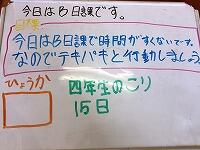 今日はB日課です。
目標
今日はB日課で時間がすくないでーす。
なのでテキパキと行動しましょう。
ひょうか
四年生のこり
15日